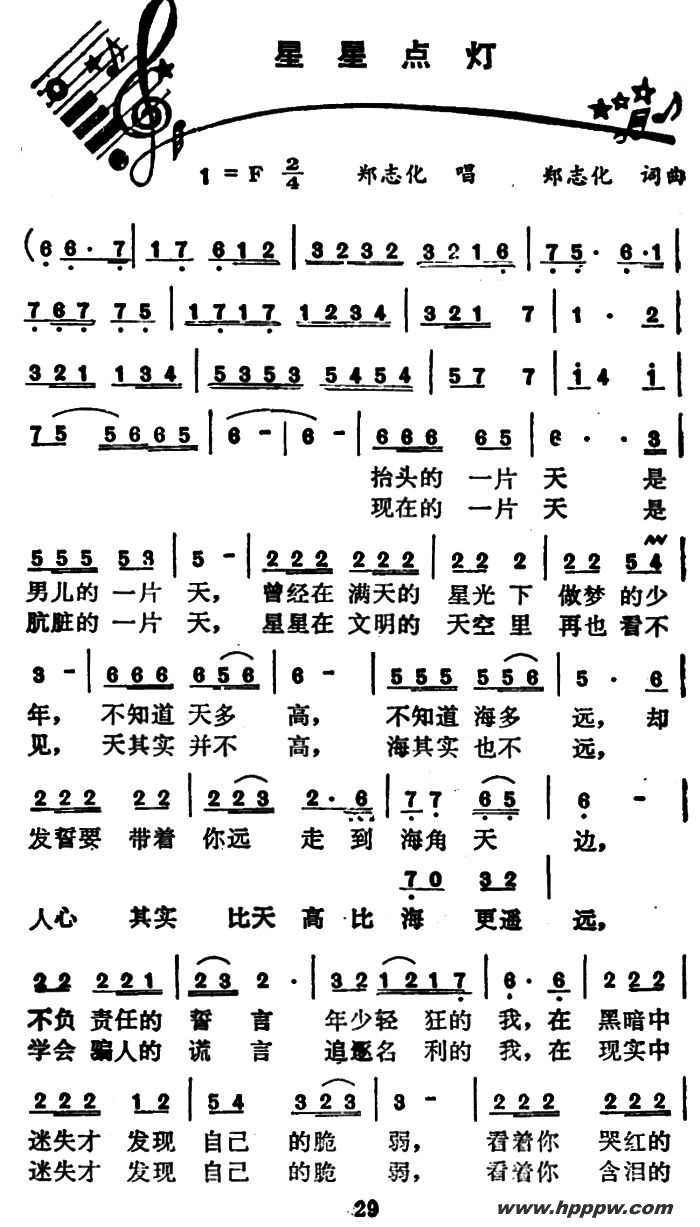 星星点灯
1=F 2/4 郑志化 唱 郑志化 词曲
(6 6· 7 | 1 7 6 1 2 | 3 2 3 2 3 2 1 6 | 7 5· 6·1 |
7 6 7 7 5 | 1 7 1 7 1 2 3 4 | 3 2 1 7 | 1 · 2 |
3 2 1 1 3 4 | 5 3 5 3 5 4 5 4 | 5 7 7 | i 4 i |
7 5 5 6 6 5 | 6 - | 6 - | 6 6 6 6 5 | 6 · · 3 |
抬头的 一片 天 是
现在的 一片 天 是
5 5 5 5 3 | 5 - | 2 2 2 2 2 2 | 2 2 2 | 2 2 5 4 |
男儿的 一片 天, 曾经在 满天的 星光 下 做梦 的少
肮脏的 一片 天, 星星在 文明的 天空 里 再也 看不
3 - | 6 6 6 6 5 6 | 6 - | 5 5 5 5 5 5 | 5 · 6 |
年, 不知道 天多 高, 不知道 海多 远, 却
见, 天其实 并不 高, 海其实 也不 远,
2 2 2 2 2 | 2 2 3 2·6 | 7 7 6 5 | 6 - |
发誓要 带着 你远 走到 海角 天 边,
7 0 3 2
人心 其实 比天 高比 海 更遥 远,
2 2 2 2 1 | 2 3 2 · | 3 2 1 2 1 7 | 6· 6 | 2 2 2
不负 责任的 誓 言 年少轻 狂的 我, 在 黑暗中
学会 骗人的 谎 言 追逐名 利的 我, 在 现实中
2 2 2 1 2 | 5 4 3 2 3 | 3 - | 2 2 2 2 2 2 |
迷失才 发现 自己 的脆 弱, 看着你 哭红的
迷失才 发现 自己 的脆 弱, 看着你 含泪的
29
www.hpppw.com